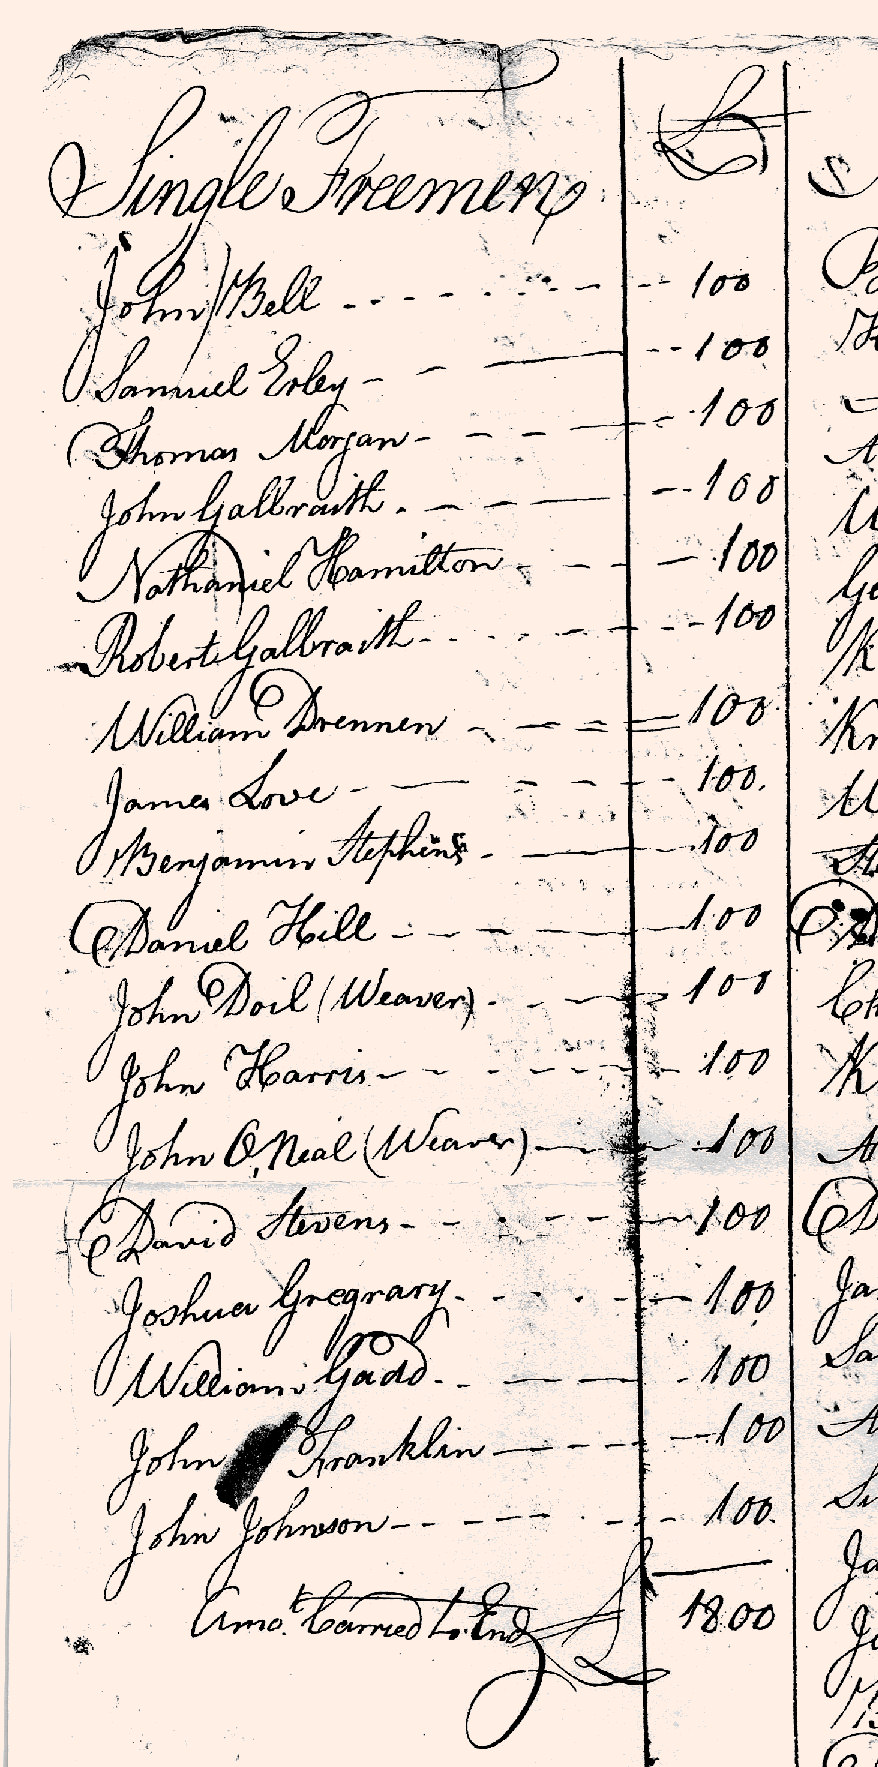 Single Freemen £
John Bell 100
Samuel Erley 100
Thomas Morgan 100
John Galbraith 100
Nathaniel Hamilton 100
Robert Galbraith 100
William Drennen 100
James Love 100
Benjamin Stephens 100
Daniel Hill 100
John Doil (Weaver) 100
John Harris 100
John O,Neal (Weaver) 100
David Stevens 100
Joshua Gregrary 100
William Gadd 100
John Franklin 100
John Johnson 100
Amo.t Carried to End £ 1800